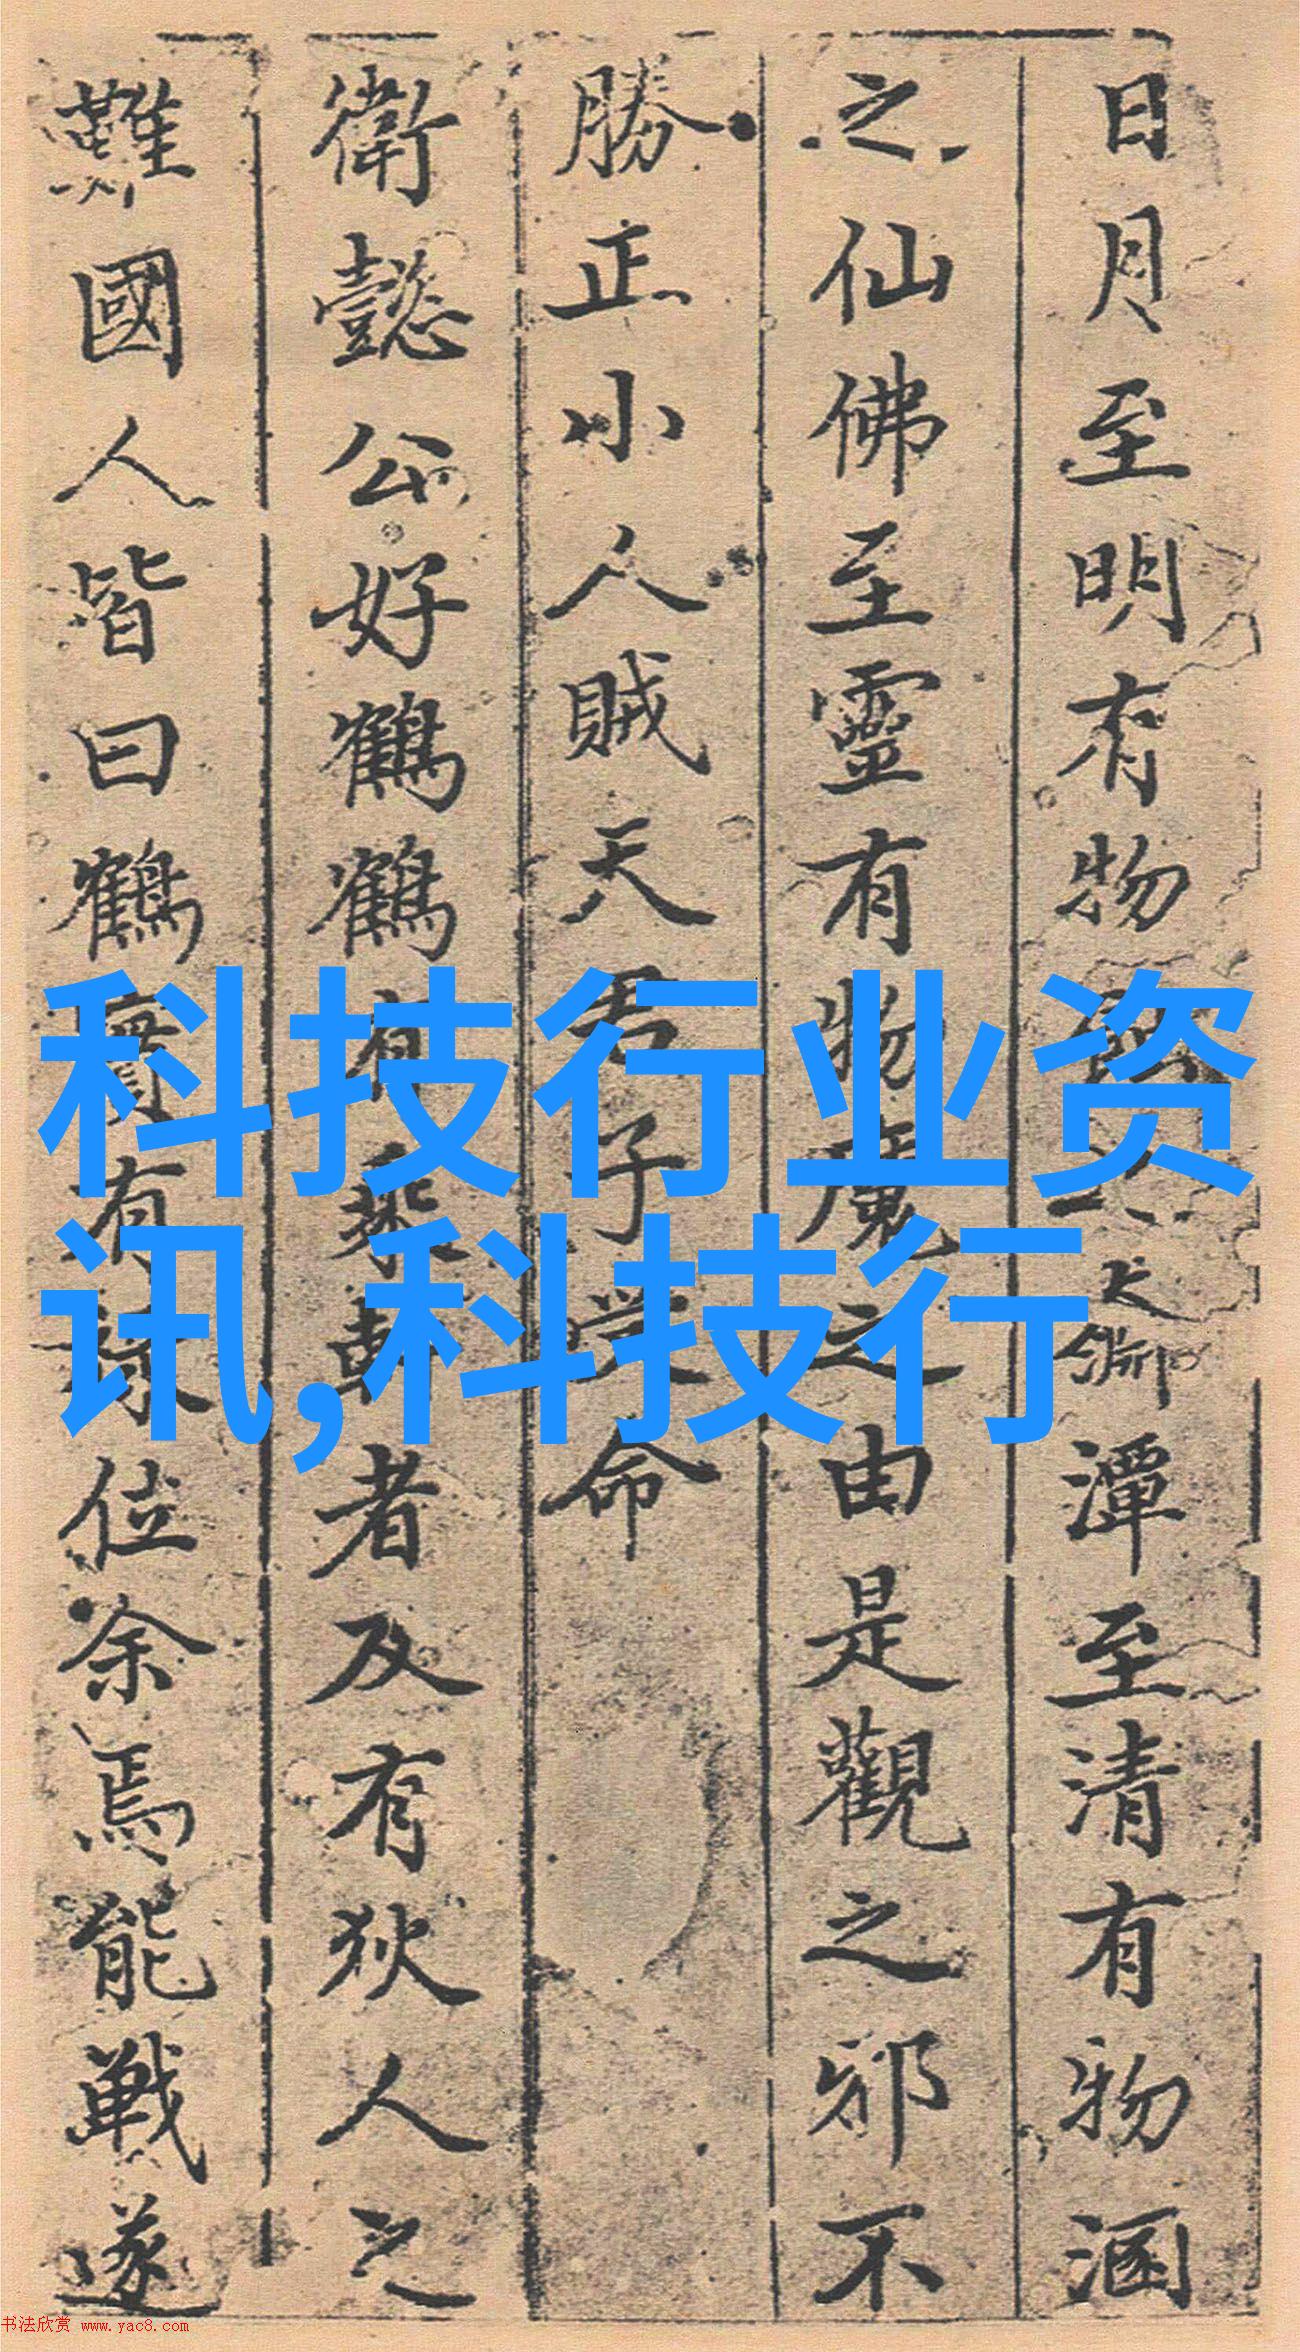 日月至明有物蝕之大淵潭至清有物溷
之仙佛至靈有物魔之由是觀之邪不
勝正小人賊天君子受命
衛懿公好鶴鶴有乘軒者及有狄人之
難國人皆曰鶴實有祿位余焉能戰遂
科技行业资
讯,科技行
书法欣赏 www.yac8.com